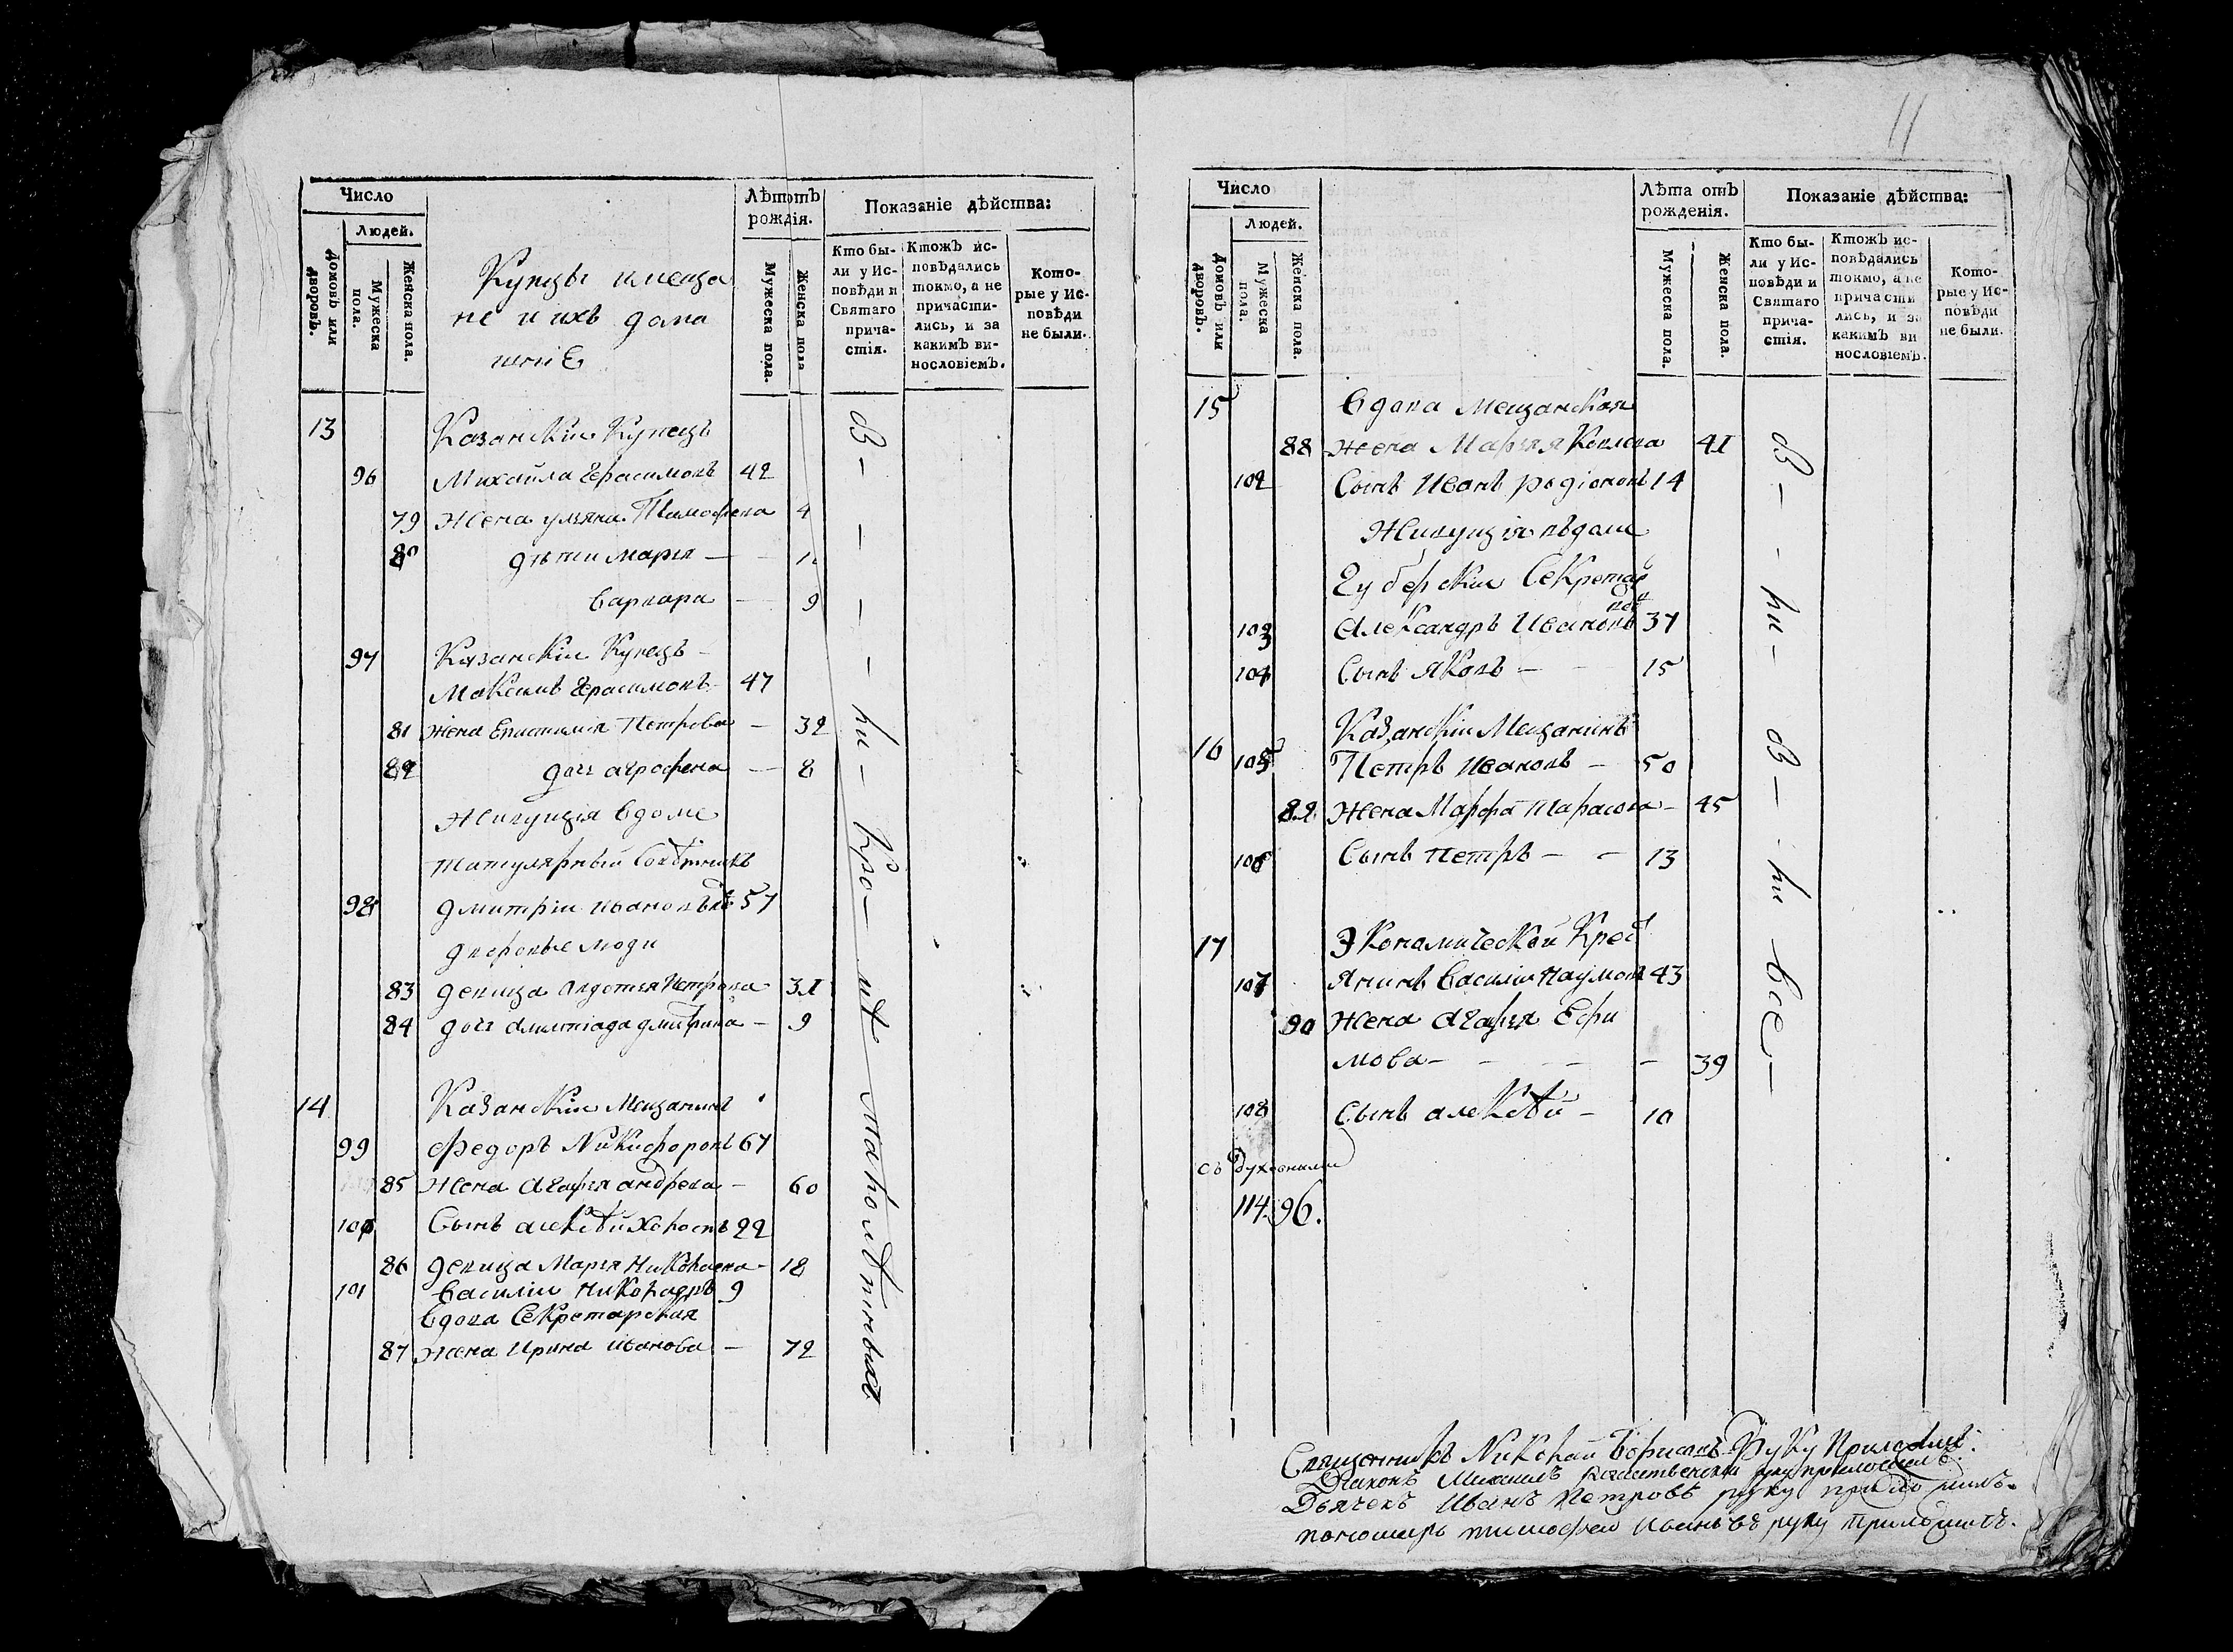 11
Число
Людей.
Домовъ или дворовъ.
Мужеска пола.
Женска пола.
Купцы и меща
не и ихъ дома
шнiе
Лѣтотъ рождiя.
Мужеска пола.
Женска пола
Показанiе дѣйства:
Кто были у Исповѣди и Святаго причастiя.
Ктожъ исповѣдались токмо, а не причастились, и за какимъ винословiемъ.
Которые у Исповѣди не были.
13 Казанскiи Купецъ
96 Михаила Герасимовъ 42
79 Жена ульяна Тимофѣева 4
80 дѣти Марья —
Варвара — 9
97 Казанскiи Купецъ —
Максимъ Герасимовъ 47
81 жена Епистимiя Петрова — 32
82 дочь агрофена — 8
Живущiя вдоме
титулярный Совѣтникъ
98 дмитрiи ивановъ 57
дворовые люди
83 девица Авдотья Петрова 31
84 дочь Олимпiада дмитрива — 9
14 Казанскiи Мещанинъ
99 Федоръ Никифоровъ 67
85 Жена Агафья андрева — 60
100 Сынъ алексѣй 22
86 девица Марья Николаева — 18
101 Василiи Николаевъ 9
Вдова Секретарская
87 жена Ирина иванова — 72
В — — — — ни — Кро — мѣ малолѣтныхъ
Число
Людей.
Домовъ или дворовъ.
Мужеска пола.
Женска пола.
Лѣта отъ рожденiя.
Мужеска пола.
Женска пола.
Показанiе дѣйства:
Кто были у Исповѣди и Святаго причастiя.
Ктожъ исповѣдались токмо, а не причасти лись, и за какимъ ви нословiемъ.
Которые у Исповѣди не были.
15 Вдова Мещанская
88 жена Марья 41
102 Сынъ Иванъ родiоновъ 14
Живущiя вдоме
Губерскiи Секретарь
103 Александръ Ивановъ 37
104 Сынъ Яковъ — 15
16 Казанскiи Мещанинъ
105 Петръ Ивановъ — 50
89 Жена Марфа Тарасова — 45
106 Сынъ петръ — — 13
17 Экономической Крес
107 янинъ Василiи Наумовъ 43
90 Жена Агафья Ефи
мова — — — — 39
108 Сынъ алексѣй — 10
В — - ни — В — - ни все —
съ Духовными
114. 96.
Священникъ Николай Борисовъ Руку Приложилъ.
Дiаконъ Михаилъ руку приложилъ.
Дьячекъ Иванъ Петровъ руку приложилъ.
пономарь тимофеи Ивановъ руку приложилъ.